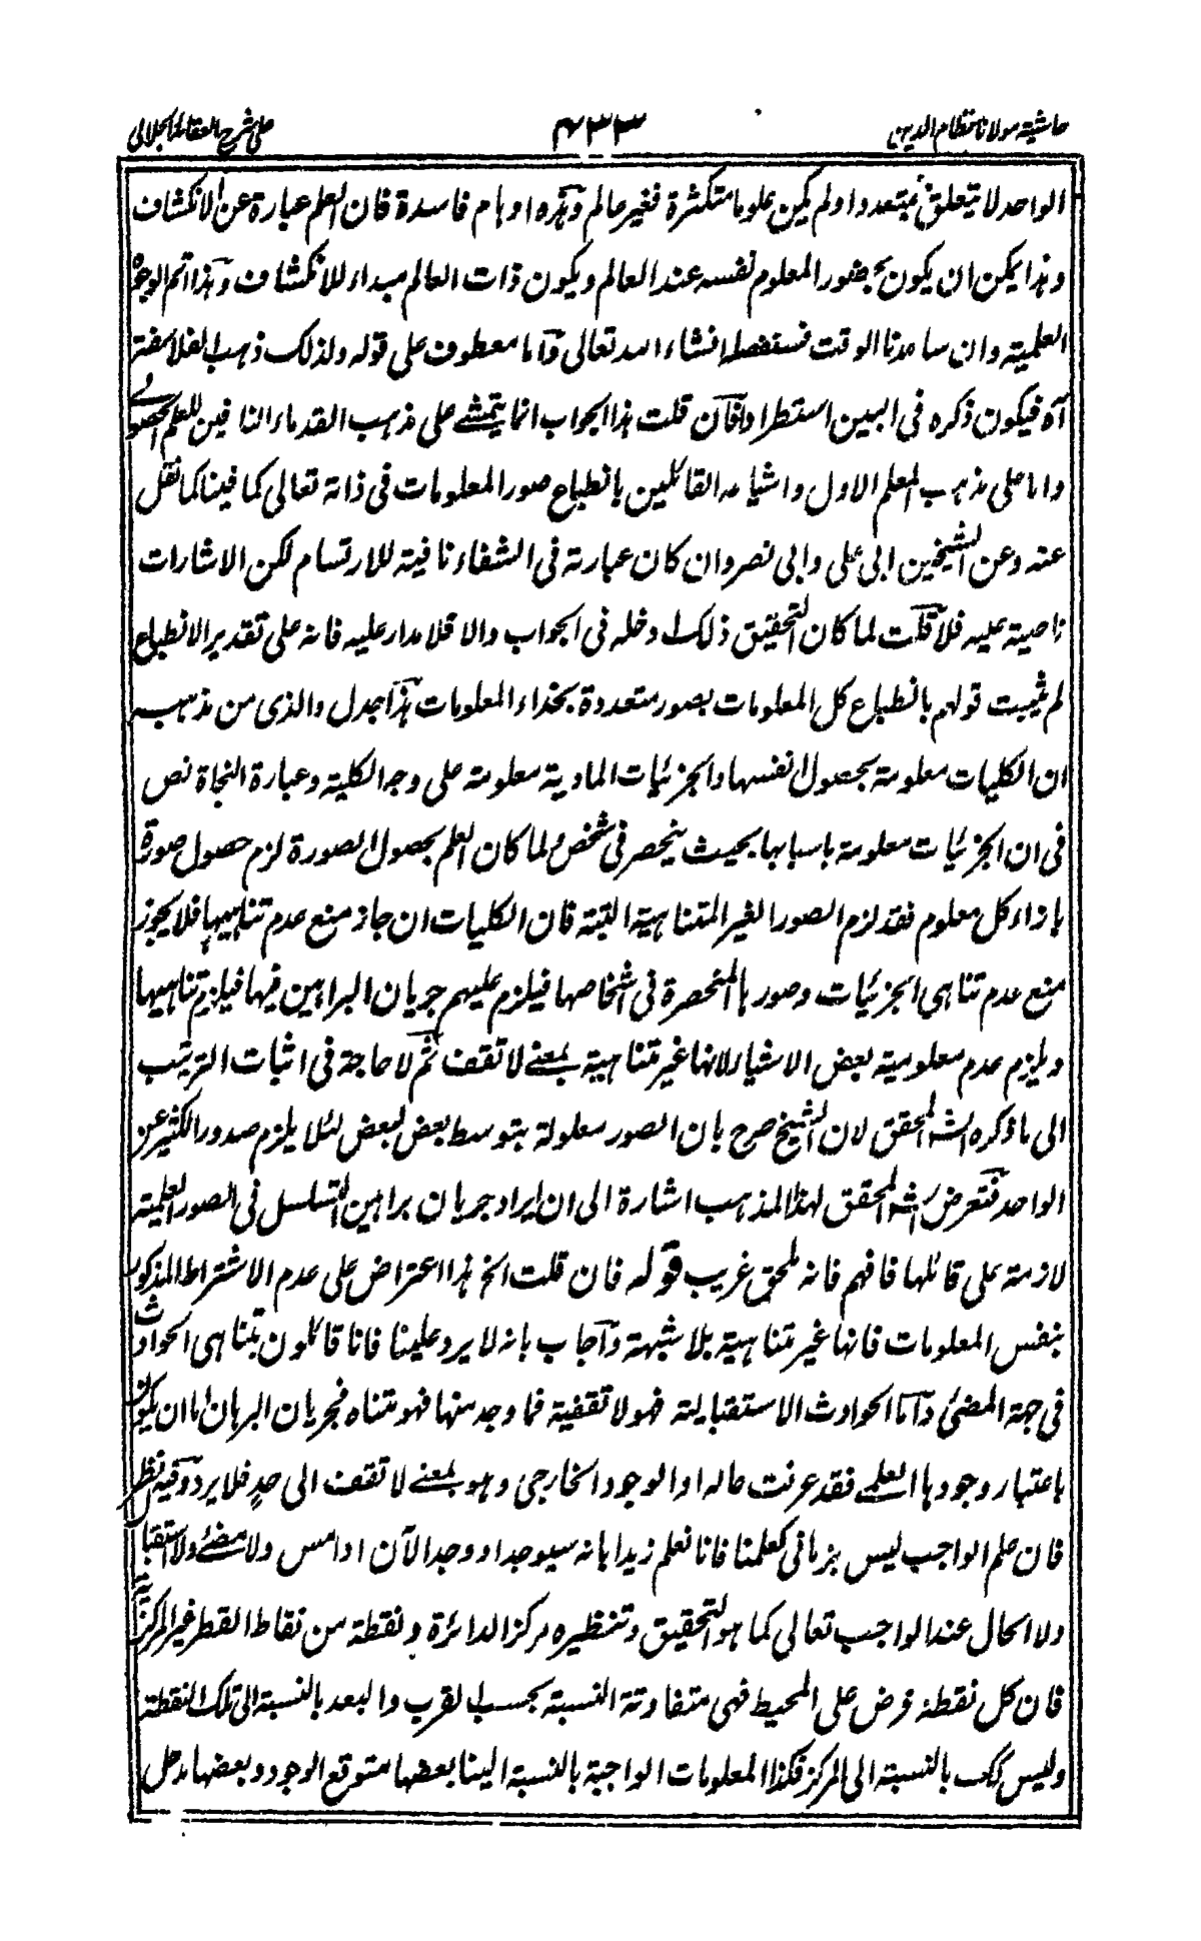 حاشية مولانا نظام الدين
٤٣٣
على شرح العقائد الجلالى
الواحد لا يتعلق بمتعدد او لم يكن علوما متكثرة فغير عالم وهذه اوهام فاسدة فان العلم عبارة عن الانكشاف
وهذا يمكن ان يكون بحضور المعلوم نفسه عند العالم ويكون ذات العالم مبداء للانكشاف وهذا اتم الوجوه
العلمية وان ساعدنا الوقت فسنفصله انشاء الله تعالى واما معطوف على قوله ولذلك ذهب الفلاسفة
آه فيكون ذكره فى البين استطرادا فان قلت هذا الجواب انما يتمشى على مذهب القدماء النافين للعلم الحصولى
واما على مذهب المعلم الاول واشياعه القائلين بانطباع صور المعلومات فى ذاته تعالى كما فينا كما نقل
عنه وعن الشيخين ابى على وابى نصر وان كان عبارته فى الشفاء نافية للارتسام لكن الاشارات
ناصية عليه فلا قلت لما كان التحقيق ذلك ادخله فى الجواب والا فلا مدار عليه فانه على تقدير الانطباع
لم يثبت قولهم بانطباع كل المعلومات بصور متعددة بحذاء المعلومات هذا جدل والذى من مذهب
ان الكليات معلومة بحصول انفسها والجزئيات المادية معلومة على وجه الكلية وعبارة النجاة نص
فى ان الجزئيات معلومة باسبابها بحيث ينحصر فى شخص ولما كان العلم بحصول الصورة لزم حصول صورة
بازاء كل معلوم فقد لزم الصور الغير المتناهية البتة فان الكليات ان جاز منع عدم تناهيها فلا يجوز
منع عدم تناهى الجزئيات وصورها المنحصرة فى اشخاصها فيلزم عليهم جريان البراهين فيها فيلزم تناهيها
ويلزم عدم معلومية بعض الاشياء لانها غير متناهية بمعنے لا تقف ثم لا حاجة فى اثبات الترتب
الى ما ذكره الشه المحقق لان الشيخ صرح بان الصور معلولة بتوسط بعض لبعض لئلا يلزم صدور الكثير عن
الواحد فتعرض الشه المحقق لهذا المذهب اشارة الى ان ايراد جريان براهين التسلسل فى الصور العلمية
لازمة على قائلها فافهم فانه ملحق غريب قوله فان قلت الخ هذا اعتراض على عدم الاشتراط المذكور
بنفس المعلومات فانها غير متناهية بلا شبهة واجاب بانه لا يرد علينا فانا قائلون بتناهى الحوادث
فى جهة المضى واما الحوادث الاستقبالية فهو لا تقفية فما وجد منها فهو متناه فجريان البرهان اما ان يكون
باعتبار وجودها العلمے فقد عرفت حاله او الوجود الخارجى وهو بمعنے لا تقف الى حد فلا يرد وفيه نظر
فان علم الواجب ليس بزمانى كعلمنا فانا نعلم زيدا بانه سيوجد او وجد الآن او امس ولا مضے ولا استقبالية
ولا الحال عند الواجب تعالى كما هو التحقيق وتنظيره مركز الدائرة ونقطة من نقاط القطر غير المركز
فان كل نقطة فرض على المحيط فهى متفاوتة النسبة بحسب القرب والبعد بالنسبة الى تلك النقطة
وليس كك بالنسبة الى المركز فكذا المعلومات الواجبة بالنسبة الينا بعضها متوقع الوجود وبعضها مدخل